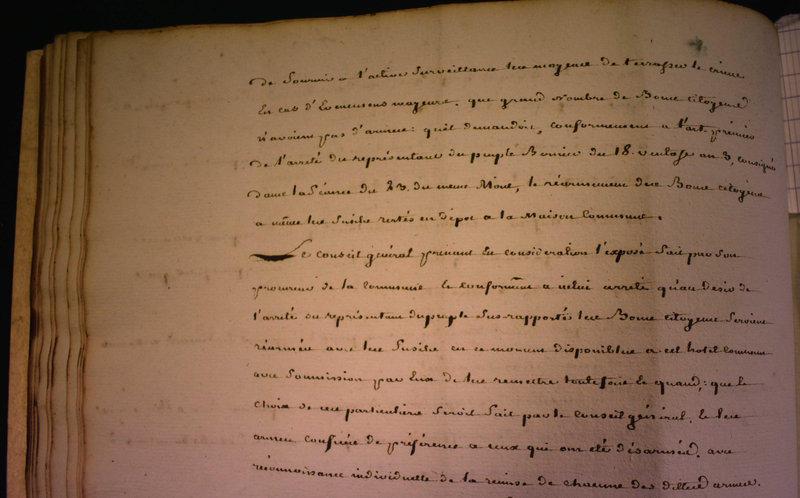 de fournir a l'active surveillance les moyens de terrasser le crime
En cas d'Evenemens majeurs. que grand Nombre de Bons citoyens
n'avoient pas d'armes: qu'il demandoit, conformement a l'art. premier
de l'arreté du représentant du peuple Bornier du 18. ventose an 3, consigné
dans la séance du 23. du meme Mois, le réarmement des Bons citoyens
a même les fusils restés en dépot a la Maison Commune.
Le conseil général prenant En considération l'exposé fait par son
procureur de la commune Et conformémt a icelui arrete qu'au desir de
l'arreté du représentant du peuple sus rapporté les Bons citoyens seroient
réarmés avec les fusils en ce moment disponibles a cet hotel commun
avec Soumission par Eux de les remettre toutefois Et quand; que le
choix de ces particuliers seroit fait par le Conseil général, Et les
armes confiées de préférence a ceux qui ont été désarmés, avec
réconnoissance individuelle de la remise de chacune des dittes armes.